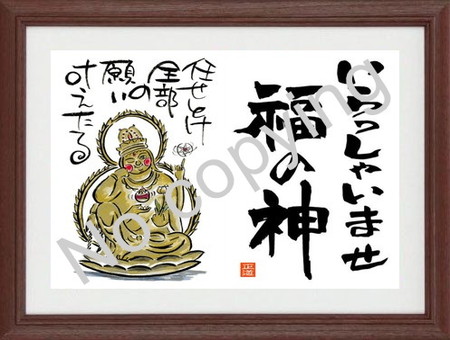 いらっしゃいませ
福の神
任せとけ
全部の
願い
叶えたる
No copying